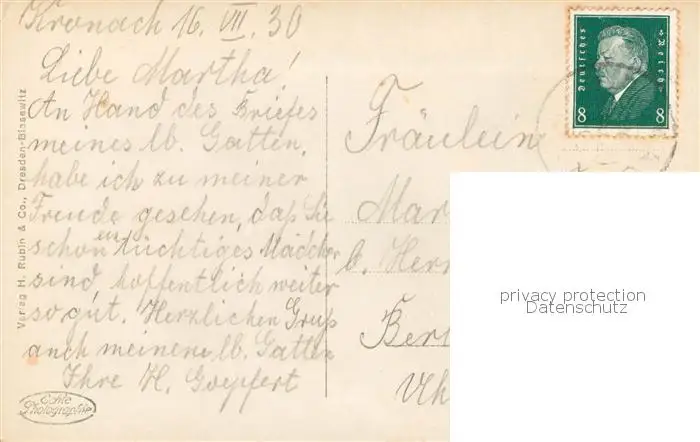 Kronach 16. VII. 30
Liebe Martha!
An Hand des Briefes
meines lb. Gatten,
habe ich zu meiner
Freude gesehen, daß Sie
schon ein tüchtiges Mädchen
sind, hoffentlich weiter
so gut. Herzlichen Gruß
auch meinem lb. Gatten
Ihre H. Goepfert
Fräulein
Mar
b. Herr
Ber
Deutsches Reich
8 8
Verlag H. Rubin & Co., Dresden-Blasewitz
Echte
Photographie
privacy protection
Datenschutz